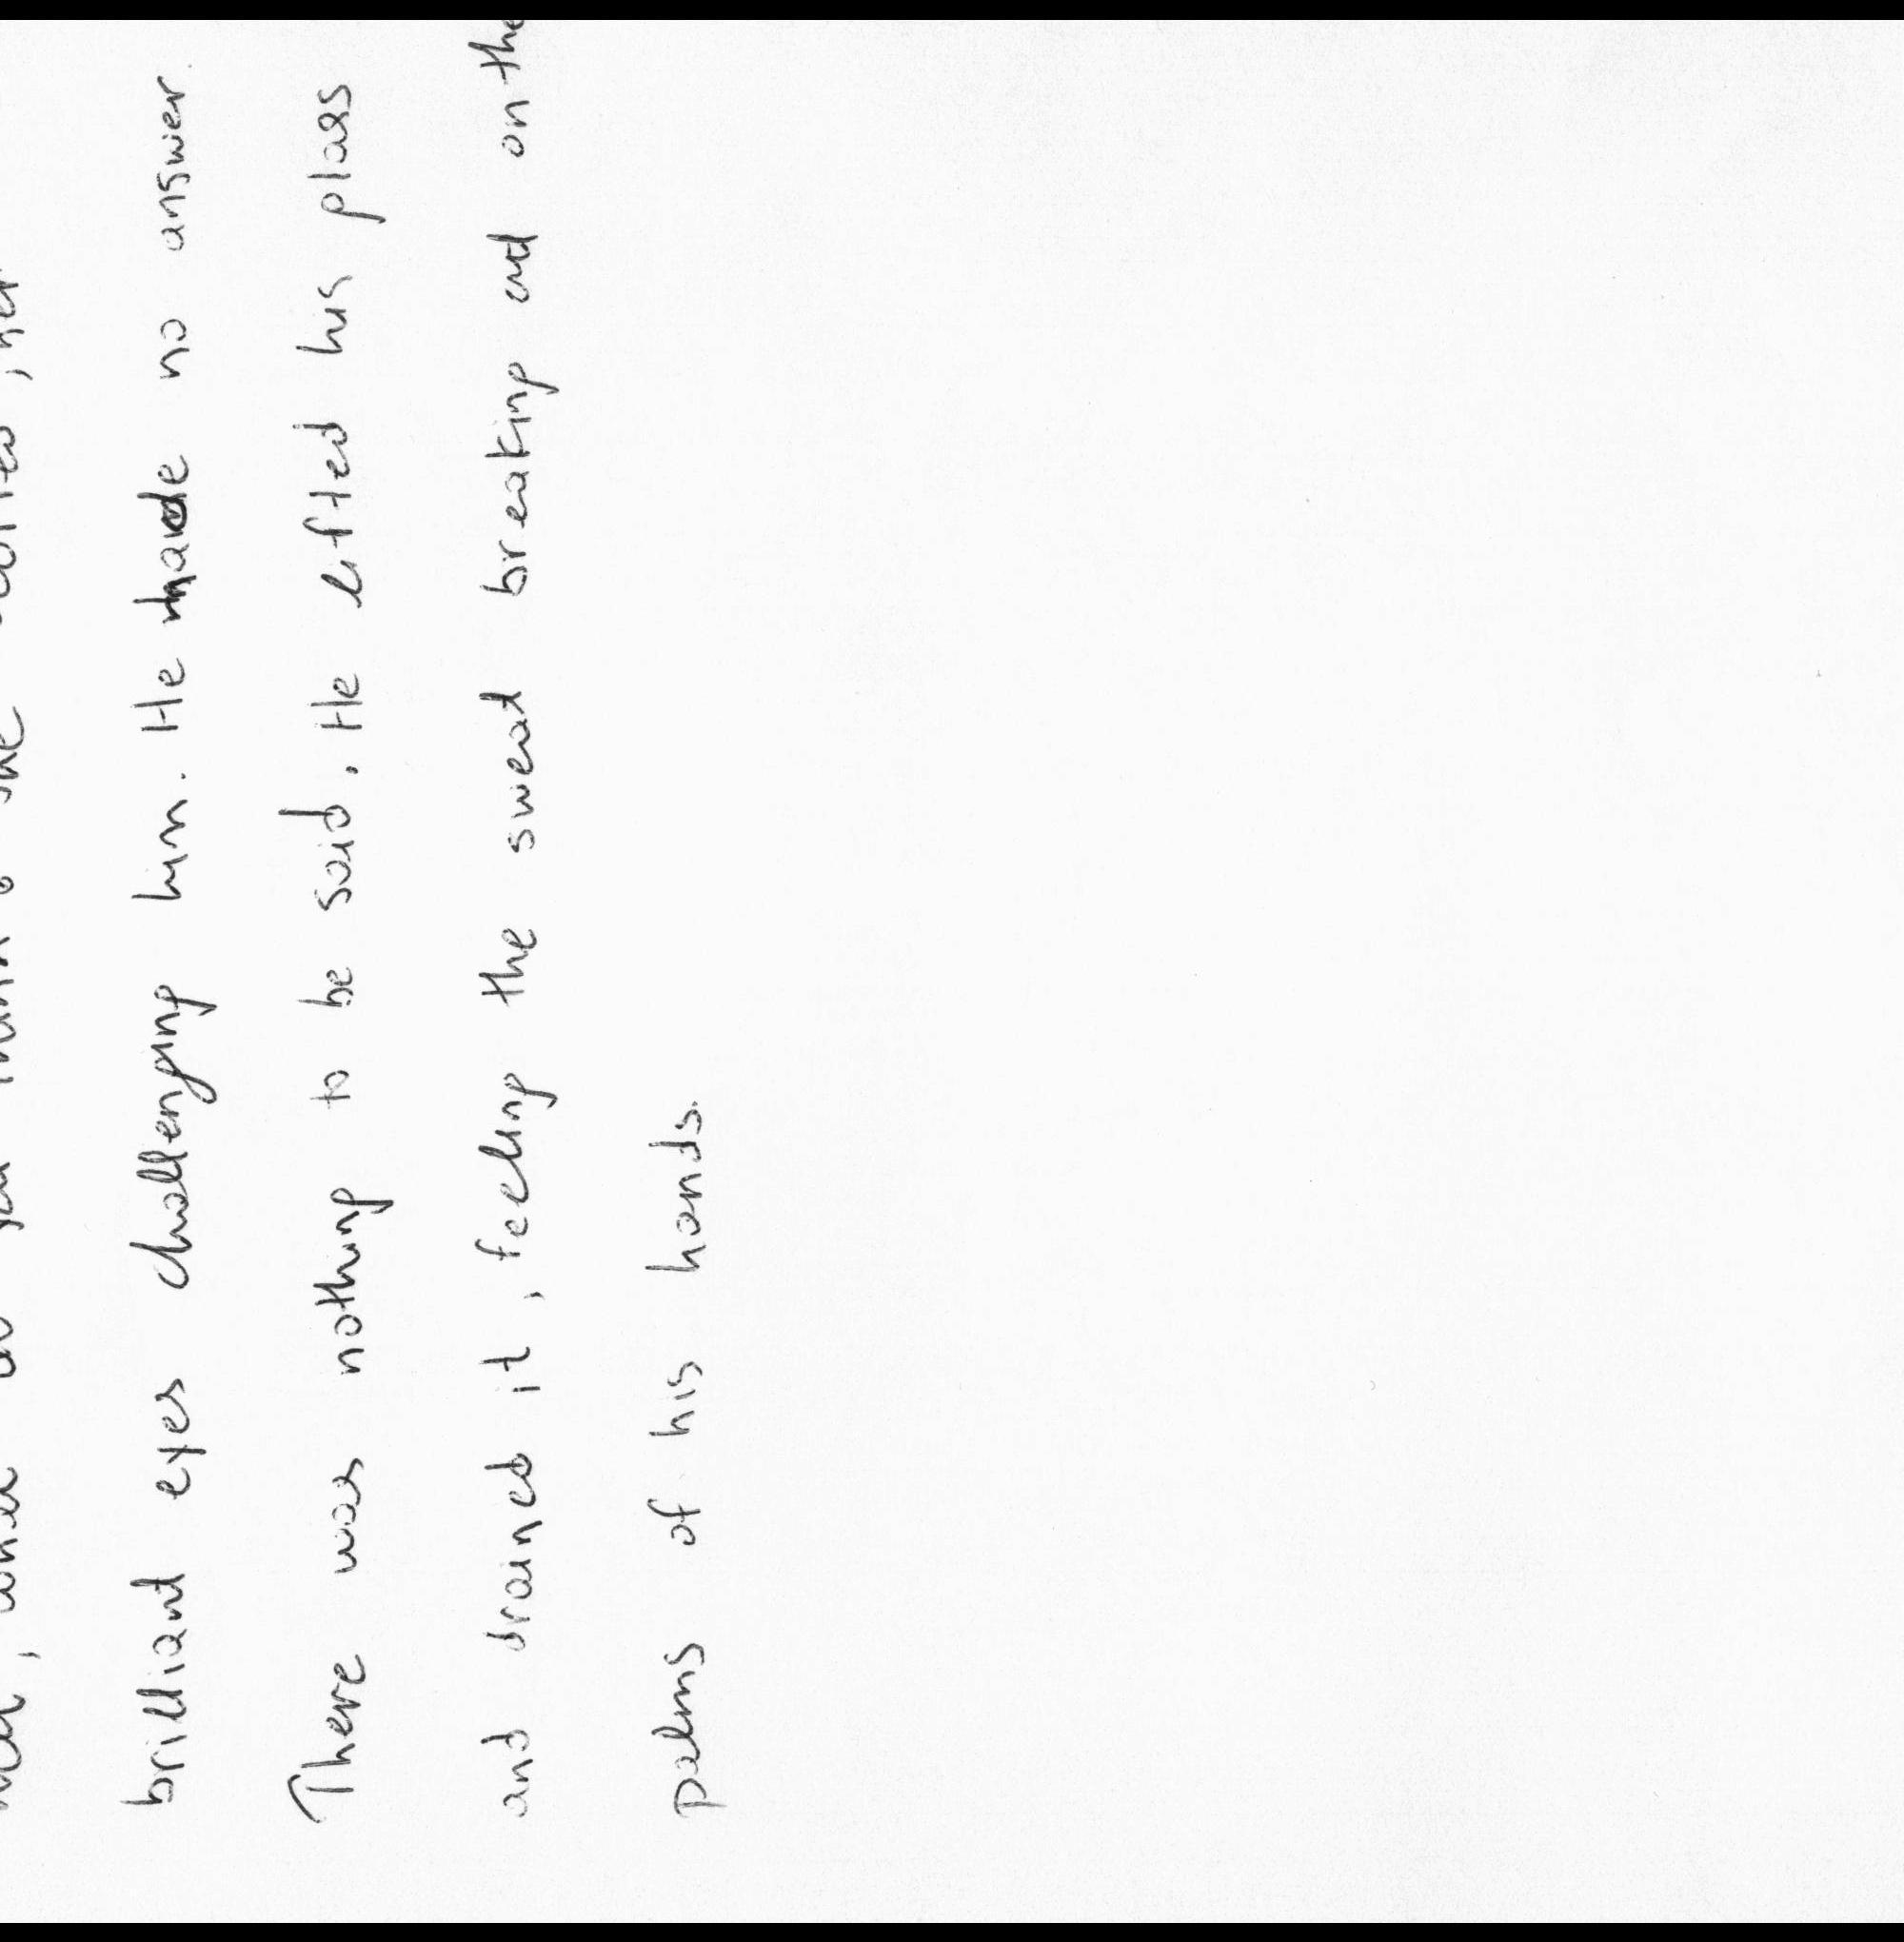 what do you think? she
brilliant eyes challenging him. He made no answer.
There was nothing to be said. He lifted his glass
and drained it, feeling the sweat breaking out on the
palms of his hands.